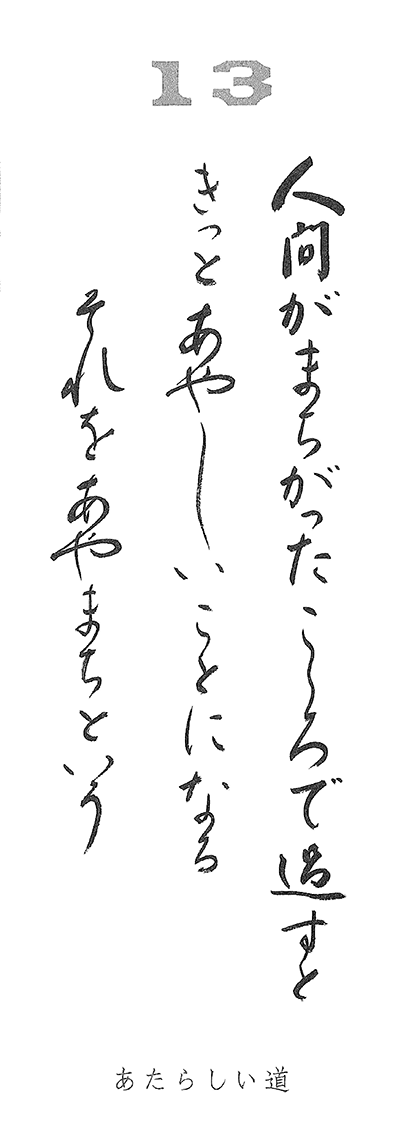 13
人間がまちがったこころで過すと
きっとあやしいことになる
それをあやまちという
あたらしい道